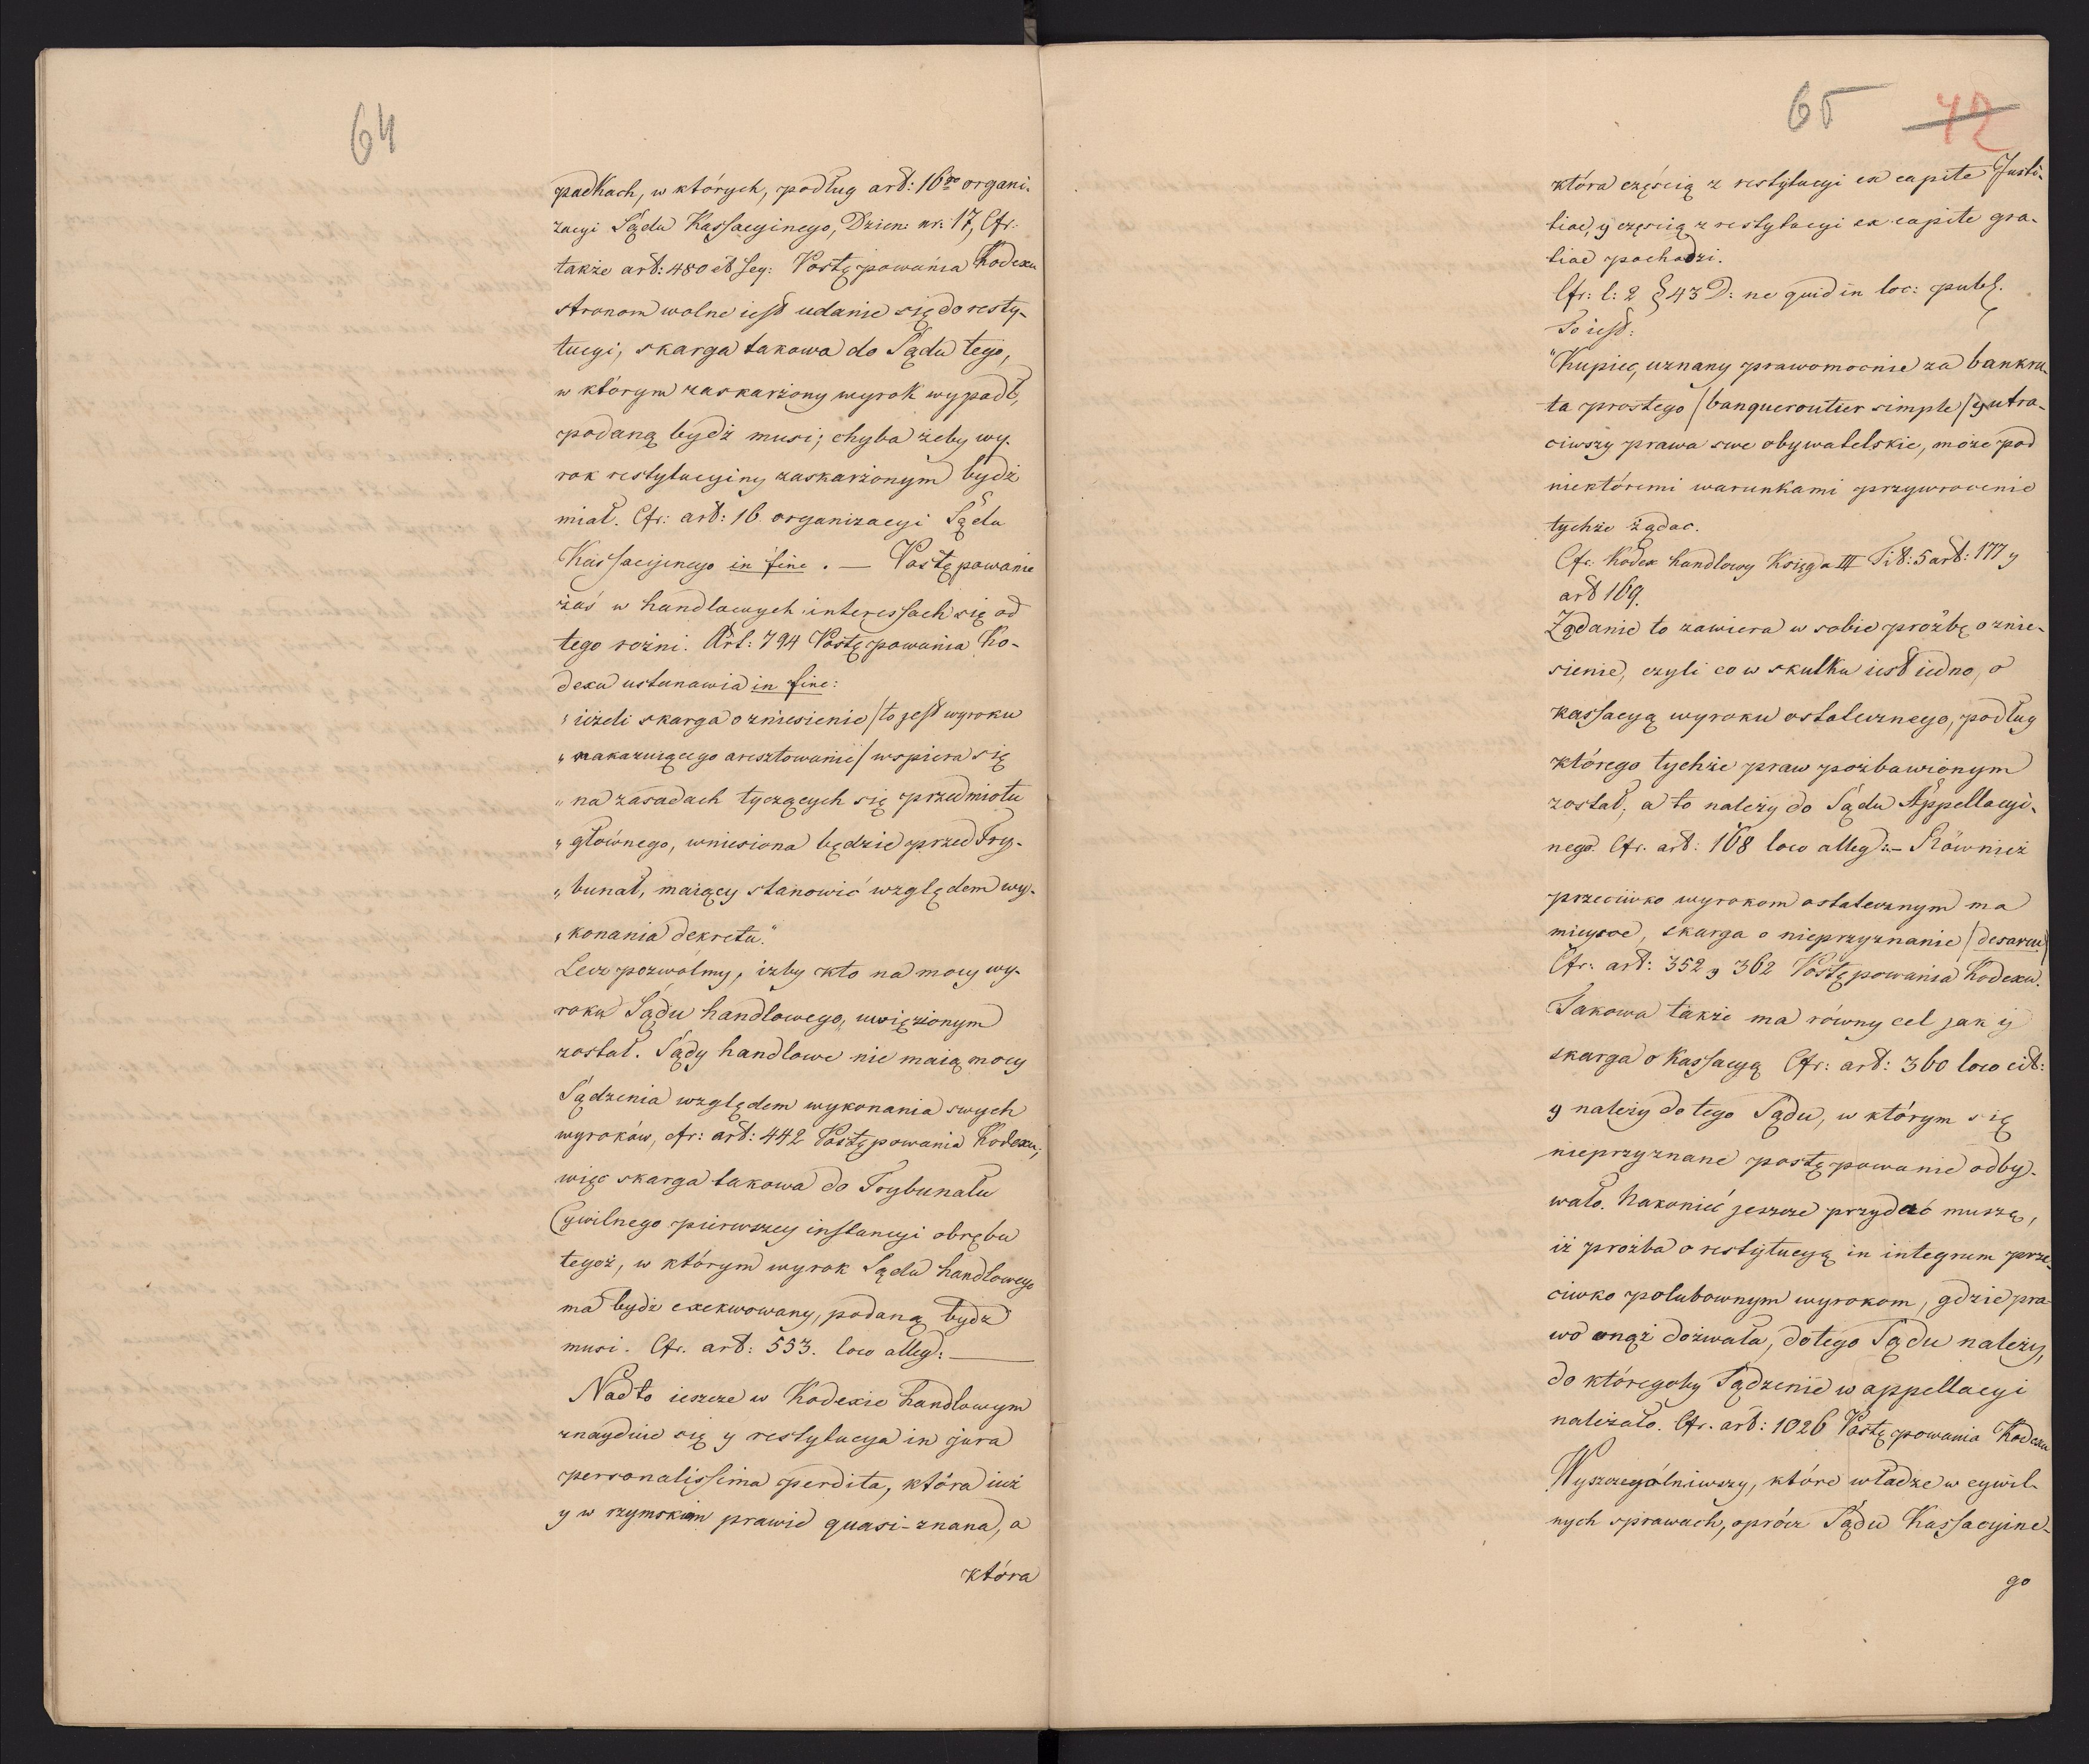 64
padkach, w których, podług art: 16go organi-
zacyi Sądu Kassacyinego, Dzien: nr: 17, Cfr.
także art: 480 et seq: Postępowania Kodexu
stronom wolne iest udanie się do resty-
tucyi, skarga takowa do Sądu tego,
w którym zaskarżony wyrok wypadł,
podaną bydź musi; chyba żeby wy-
rok restytucyiny zaskarżonym bydź
miał. Cfr: art: 16 organizacyi Sądu
Kassacyinego in fine. — Postępowanie
zaś w handlowych interessach się od
tego rożni. Art: 794 Postępowania Ko-
dexu ustanawia in fine:
„ iżeli skarga o zniesienie /to jest wyroku
„ nakazuiącego aresztowanie/ wspiera się
„ na zasadach tyczących się przedmiotu
„ głównego, wniesiona będzie przed Try-
„ bunał, maiący stanowić względem wy-
„ konania dekretu."
Lecz pozwólmy, iżby kto na mocy wy-
roku Sądu handlowego, uwięzionym
został. Sądy handlowe nie maią mocy
Sądzenia względem wykonania swych
wyroków, cfr: art: 442 Postępowania Kodexu;
więc skarga takowa do Trybunału
Cywilnego pierwszey instancyi obrębu
tegoż, w którym wyrok Sądu handlowego
ma bydź exekwowany, podaną bydź
musi. Cfr. art: 553. loco alleg: —
Nadto ieszcze w Kodexie handlowym
znayduie się y restytucya in jura
personalissima perdita, która iuż
y w rzymskim prawie quasi-znana, a
która
65 42
która częścią z restytucyi ex capite Justi-
tiae, y częścią z restytucyi ex capite gra-
tiae pochodzi.
Cfr: l: 2 § 43 D: ne quid in loc: publ.
To iest:
"Kupiec, uznany prawomocnie za bankru-
ta prostego /banqueroutier simple/ y utra-
ciwszy prawa swe obywatelskie, może pod
niektóremi warunkami przywrocenie
tychże żądac.
Cfr. Kodex handlowy Księga III Tit: 5 art: 177 y
art 169.
Żądanie to zawiera w sobie prożbę o znie-
sienie, czyli co w skutku iest iedno, o
kassacyą wyroku ostatecznego, podług
którego tychże praw pozbawionym
został; a to należy do Sądu Appellacyi-
nego. Cfr. art: 168 loco alleg: — Również
przeciwko wyrokom ostatecznym ma
mieysce, skarga o nieprzyznanie /desaveu/
Cfr: art: 352 y 362 Postępowania Kodexu.
Takowa także ma równy cel jak y
skarga o Kassacyą Cfr: art: 360 loco cit:
y należy do tego Sądu, w którym się
nieprzyznane postępowanie odby-
wało. Nakonieć jeszcze przydać muszę,
iż prożba o restytucyą in integrum prze-
ciwko polubownym wyrokom, gdzie pra-
wo onąż dozwala, do tego Sądu należy,
do któregoby Sądzenie w appellacyi
należało. Cfr. art: 1026 Postępowania Kodexu
Wyszczególniwszy, które władze w cywil-
nych sprawach, oprócz Sądu Kassacyine-
go